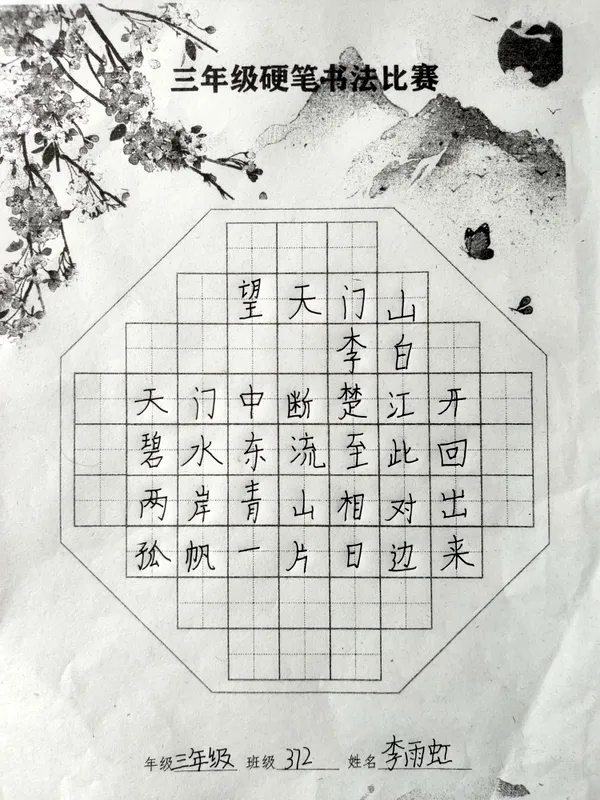 三年级硬笔书法比赛
望天门山
李白
天门中断楚江开
碧水东流至此回
两岸青山相对出
孤帆一片日边来
年级三年级 班级312 姓名李雨虹